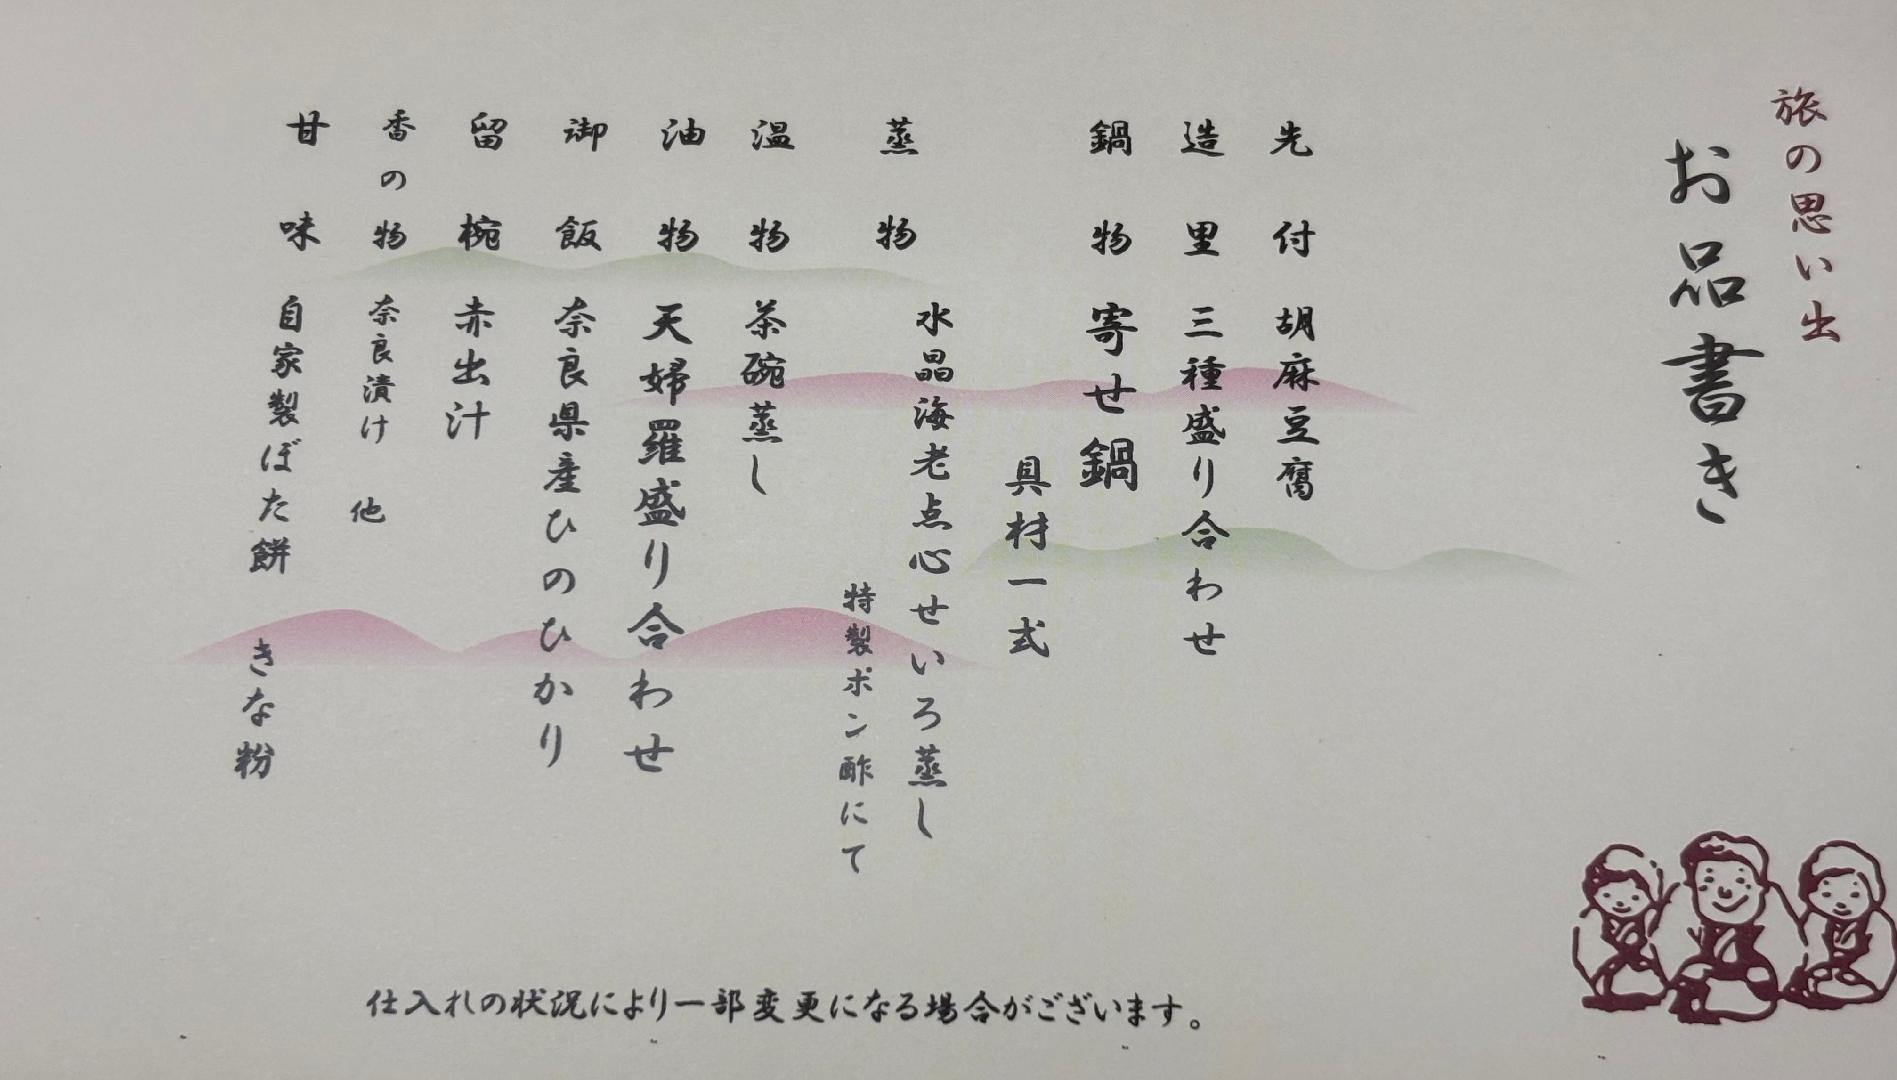 旅の思い出
お品書き
先付 胡麻豆腐
造里 三種盛り合わせ
鍋物 寄せ鍋
具材一式
蒸物 水晶海老点心せいろ蒸し
特製ポン酢にて
温物 茶碗蒸し
油物 天婦羅盛り合わせ
御飯 奈良県産ひのひかり
留椀 赤出汁
香の物 奈良漬け 他
甘味 自家製ぼた餅 きな粉
仕入れの状況により一部変更になる場合がございます。